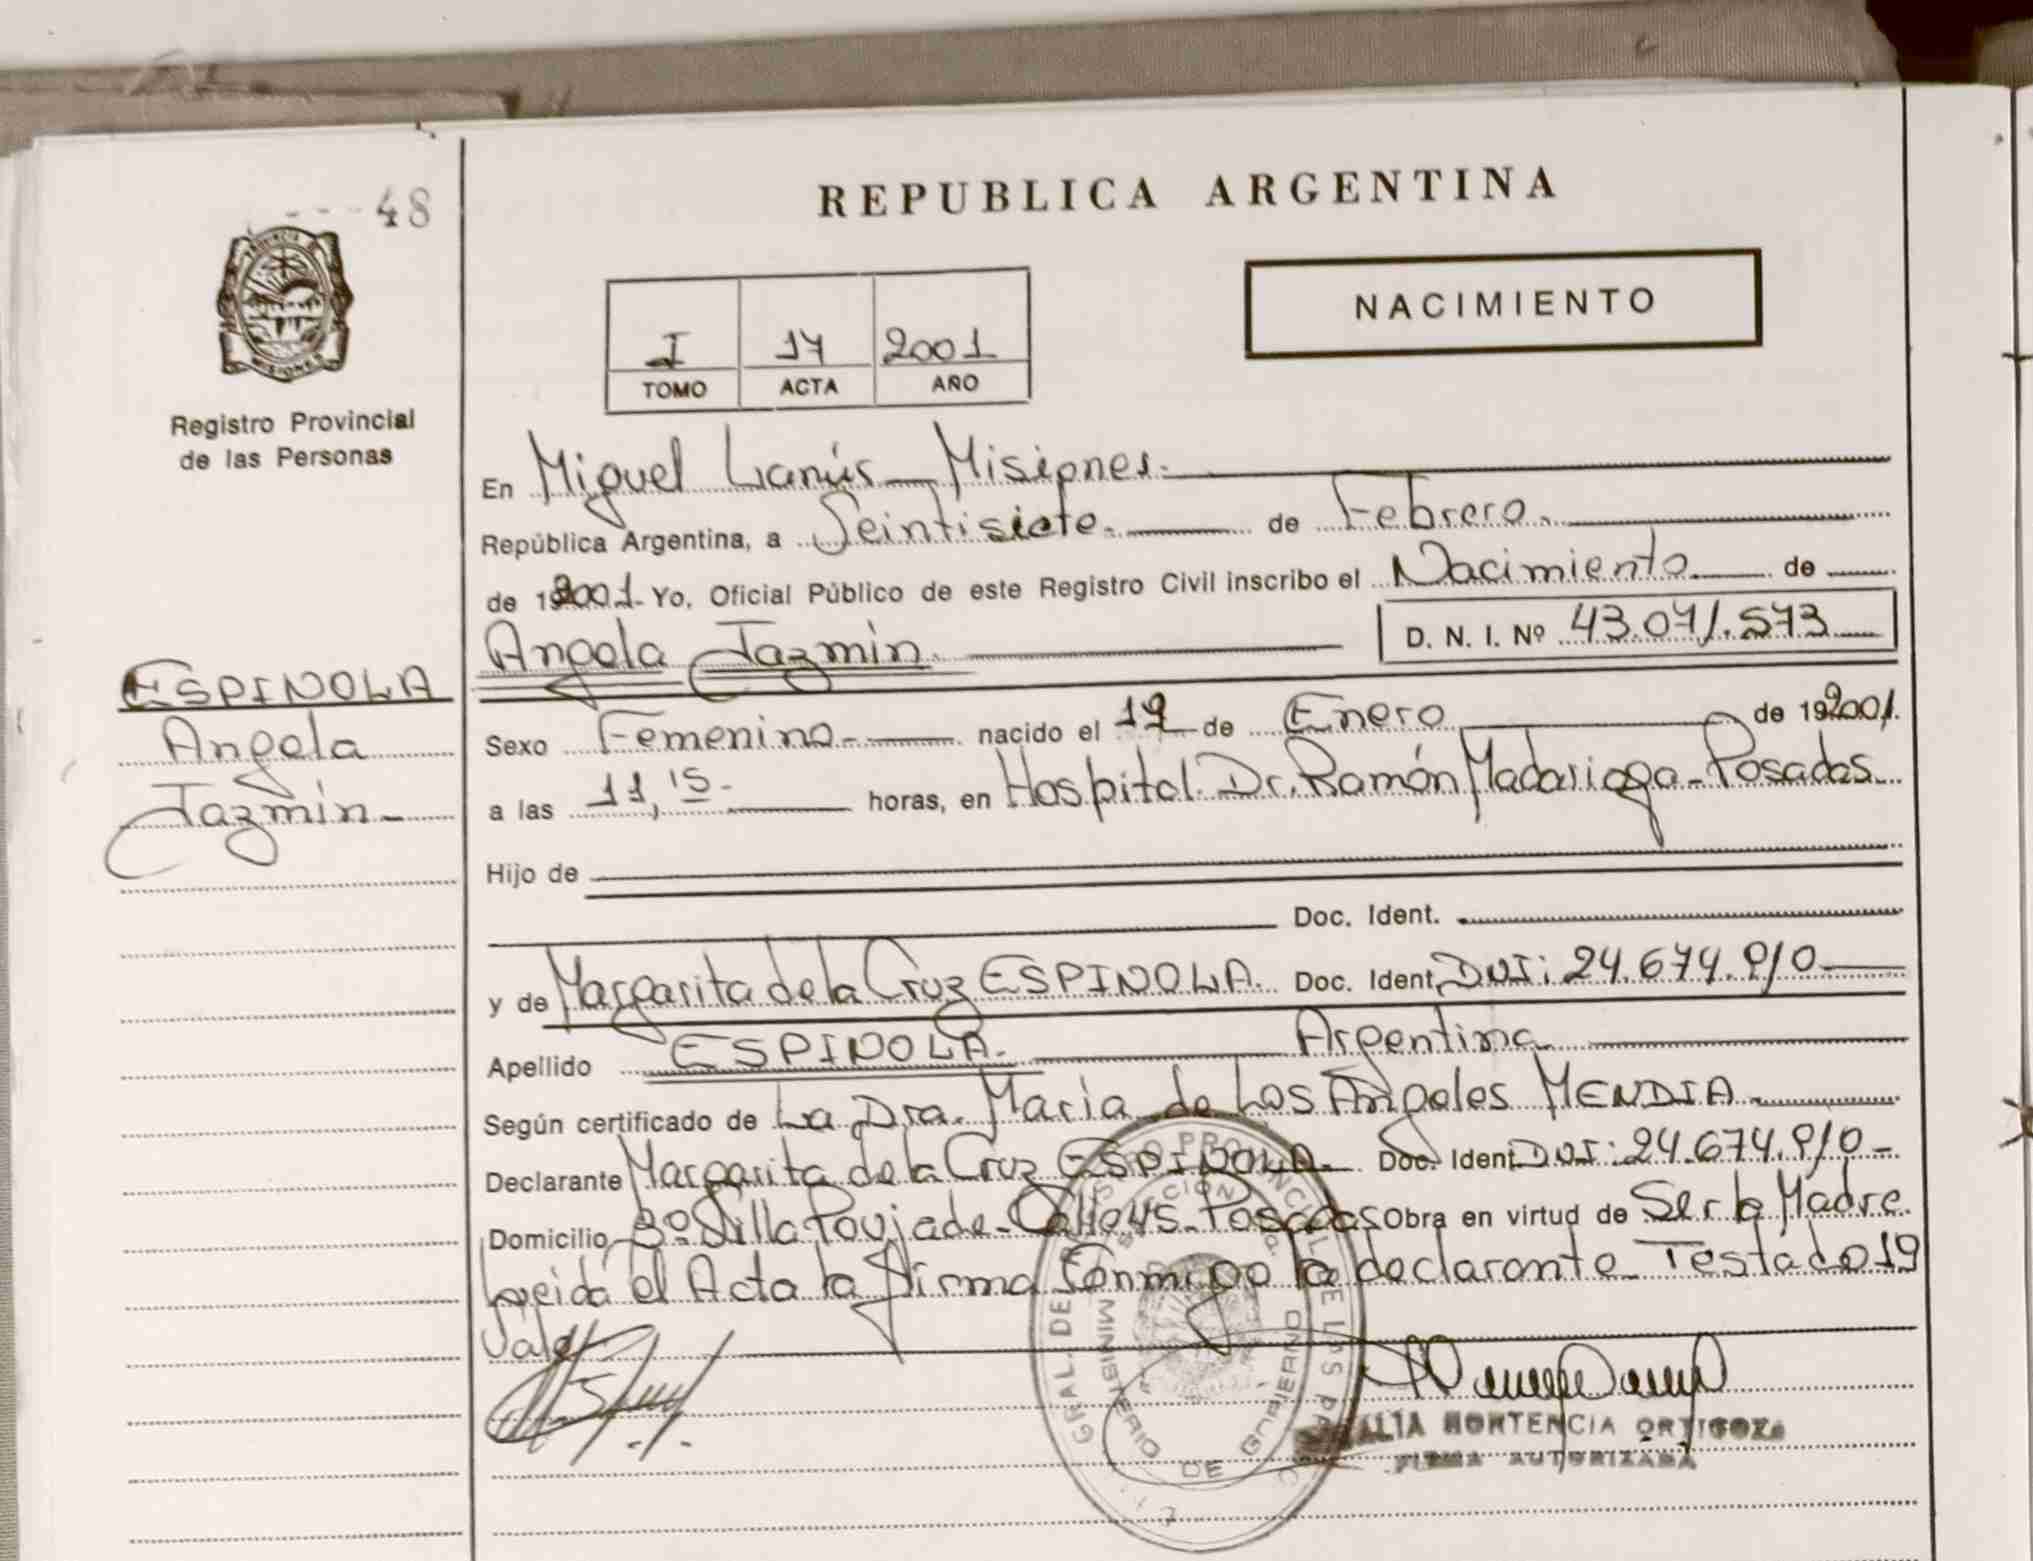 48
REPUBLICA ARGENTINA
NACIMIENTO
I 17 2001
TOMO ACTA AÑO
Registro Provincial
de las Personas
En Miguel Lanús - Misiones.
República Argentina, a Veintisiete. de Febrero.
de 192001. Yo, Oficial Público de este Registro Civil inscribo el Nacimiento de
Angela Jazmin. D. N. I. Nº 43.071.573
ESPINOLA
Angela
Jazmin-
Sexo Femenino- nacido el 19 de Enero de 192001.
a las 11,15- horas, en Hospital Dr. Ramón Madariaga - Posadas
Hijo de
Doc. Ident.
y de Margarita de la Cruz ESPINOLA. Doc. Ident. DNI: 24.674.910
Apellido ESPINOLA. Argentina
Según certificado de La Dra. Maria de Los Angeles MENDIA
Declarante Margarita de la Cruz ESPINOLA. Doc. Ident DNI: 24.674.910-
Domicilio Bº Villa Poujade - Posadas Obra en virtud de Ser la Madre.
Leida el Acta la firma Conmigo la declarante Testado 19
Vale
MINISTERIO DE GOBIERNO
HORTENCIA ORTIGOZA
FIRMA AUTORIZADA